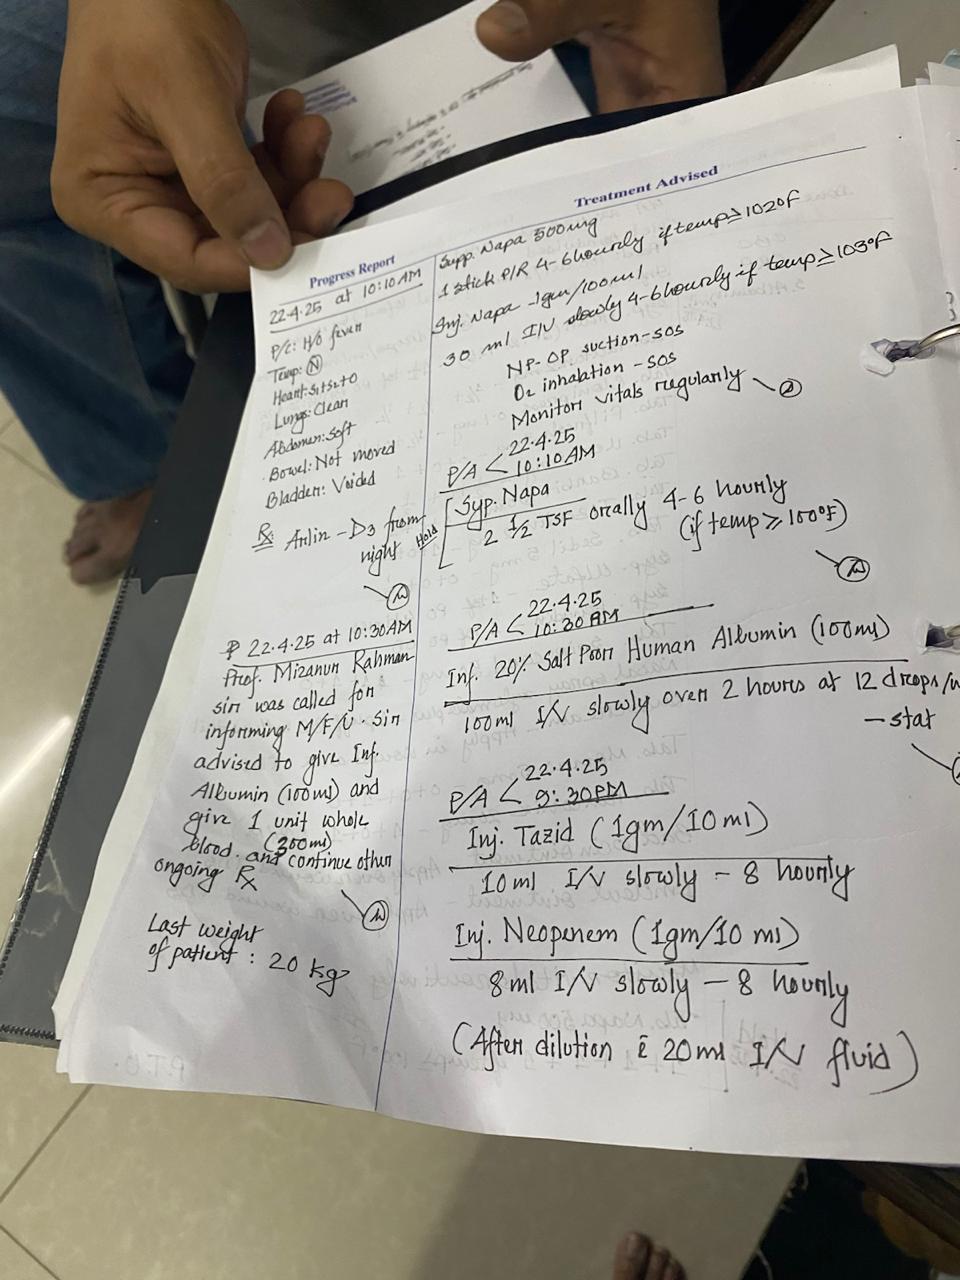 Progress Report
22.4.25 at 10:10AM
P/C: H/O fever
Temp: N
Heart: S1+S2+0
Lungs: Clear
Abdomen: Soft
Bowel: Not moved
Bladder: Voided
Rx Arlin-D3 from
night
22.4.25 at 10:30AM
Prof. Mizanur Rahman
sir was called for
informing M/F/U. sir
advised to give Inf.
Albumin (100ml) and
give 1 unit whole
(300ml)
blood. and continue other
ongoing Rx
Last weight
of patient : 20 kg
Treatment Advised
Supp. Napa 500mg
1 stick P/R 4-6 hourly if temp ≥ 102°F
Inj. Napa 1gm/100ml
30 ml I/V slowly 4-6 hourly if temp ≥ 103°F
NP-OP suction-sos
O2 inhalation-sos
Monitor vitals regularly
P/A < 22.4.25
10:10AM
Hold
Syp. Napa
2 1/2 TSF orally 4-6 hourly
(if temp ≥ 100°F)
P/A < 22.4.25
10:30 AM
Inf. 20% Salt Poor Human Albumin (100ml)
100ml I/V slowly over 2 hours at 12 drops/
- stat
P/A < 22.4.25
9:30PM
Inj. Tazid (1gm/10ml)
10ml I/V slowly - 8 hourly
Inj. Neopenem (1gm/10 ml)
8ml I/V slowly - 8 hourly
(After dilution c̄ 20ml I/V fluid)